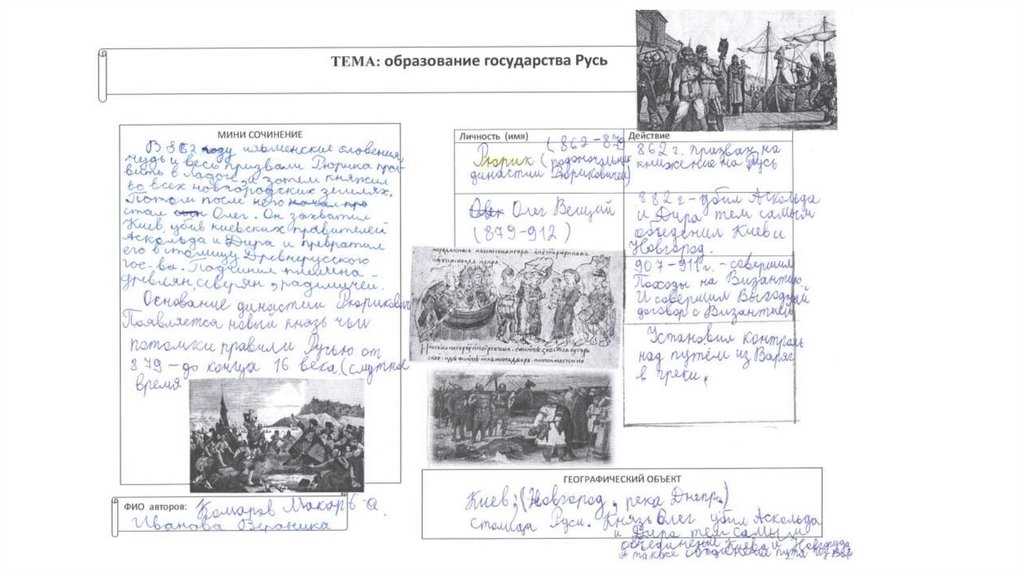 ТЕМА: образование государства Русь
МИНИ СОЧИНЕНИЕ
В 862 году ильменские словения,
чудь и весь призвали Рюрика пра-
вить в Ладоге, а затем княжил
во всех новгородских землях.
Потом после него начал пра
стал Олег. Он захватил
Киев, убив киевских правителей
Аскольда и Дира и превратил
его в столицу Древнерусского
гос-ва. Подчинил племена -
древлян, северян, радимичей.
Основание династии Рюрикович
Появляется новый князь чьи
потомки правили Русью от
879 - до конца 16 века (смутное
время
ФИО авторов: Комаров Макар 6-а
Иванова Вероника
Личность (имя)
(862-879
Рюрик (родоначальник
династии Рюриковичей)
Олег Вещий
(879-912)
Действие
862 г. призван на
княжение на Русь
882 г - убил Аскольда
и Дира тем самым
объеденил Киев и
Новгород.
907-911 г. - совершил
Походы на Византию.
И совершил Выгодный
договор с Византией
Установил контроль
над путём из Варяг
в греки.
ГЕОГРАФИЧЕСКИЙ ОБЪЕКТ
Киев, (Новгород, река Днепр.)
столица Руси. Князь Олег убил Аскольда
и Дира тем самым
объединение Киева и Новгорода
А также соединения пути из Вар